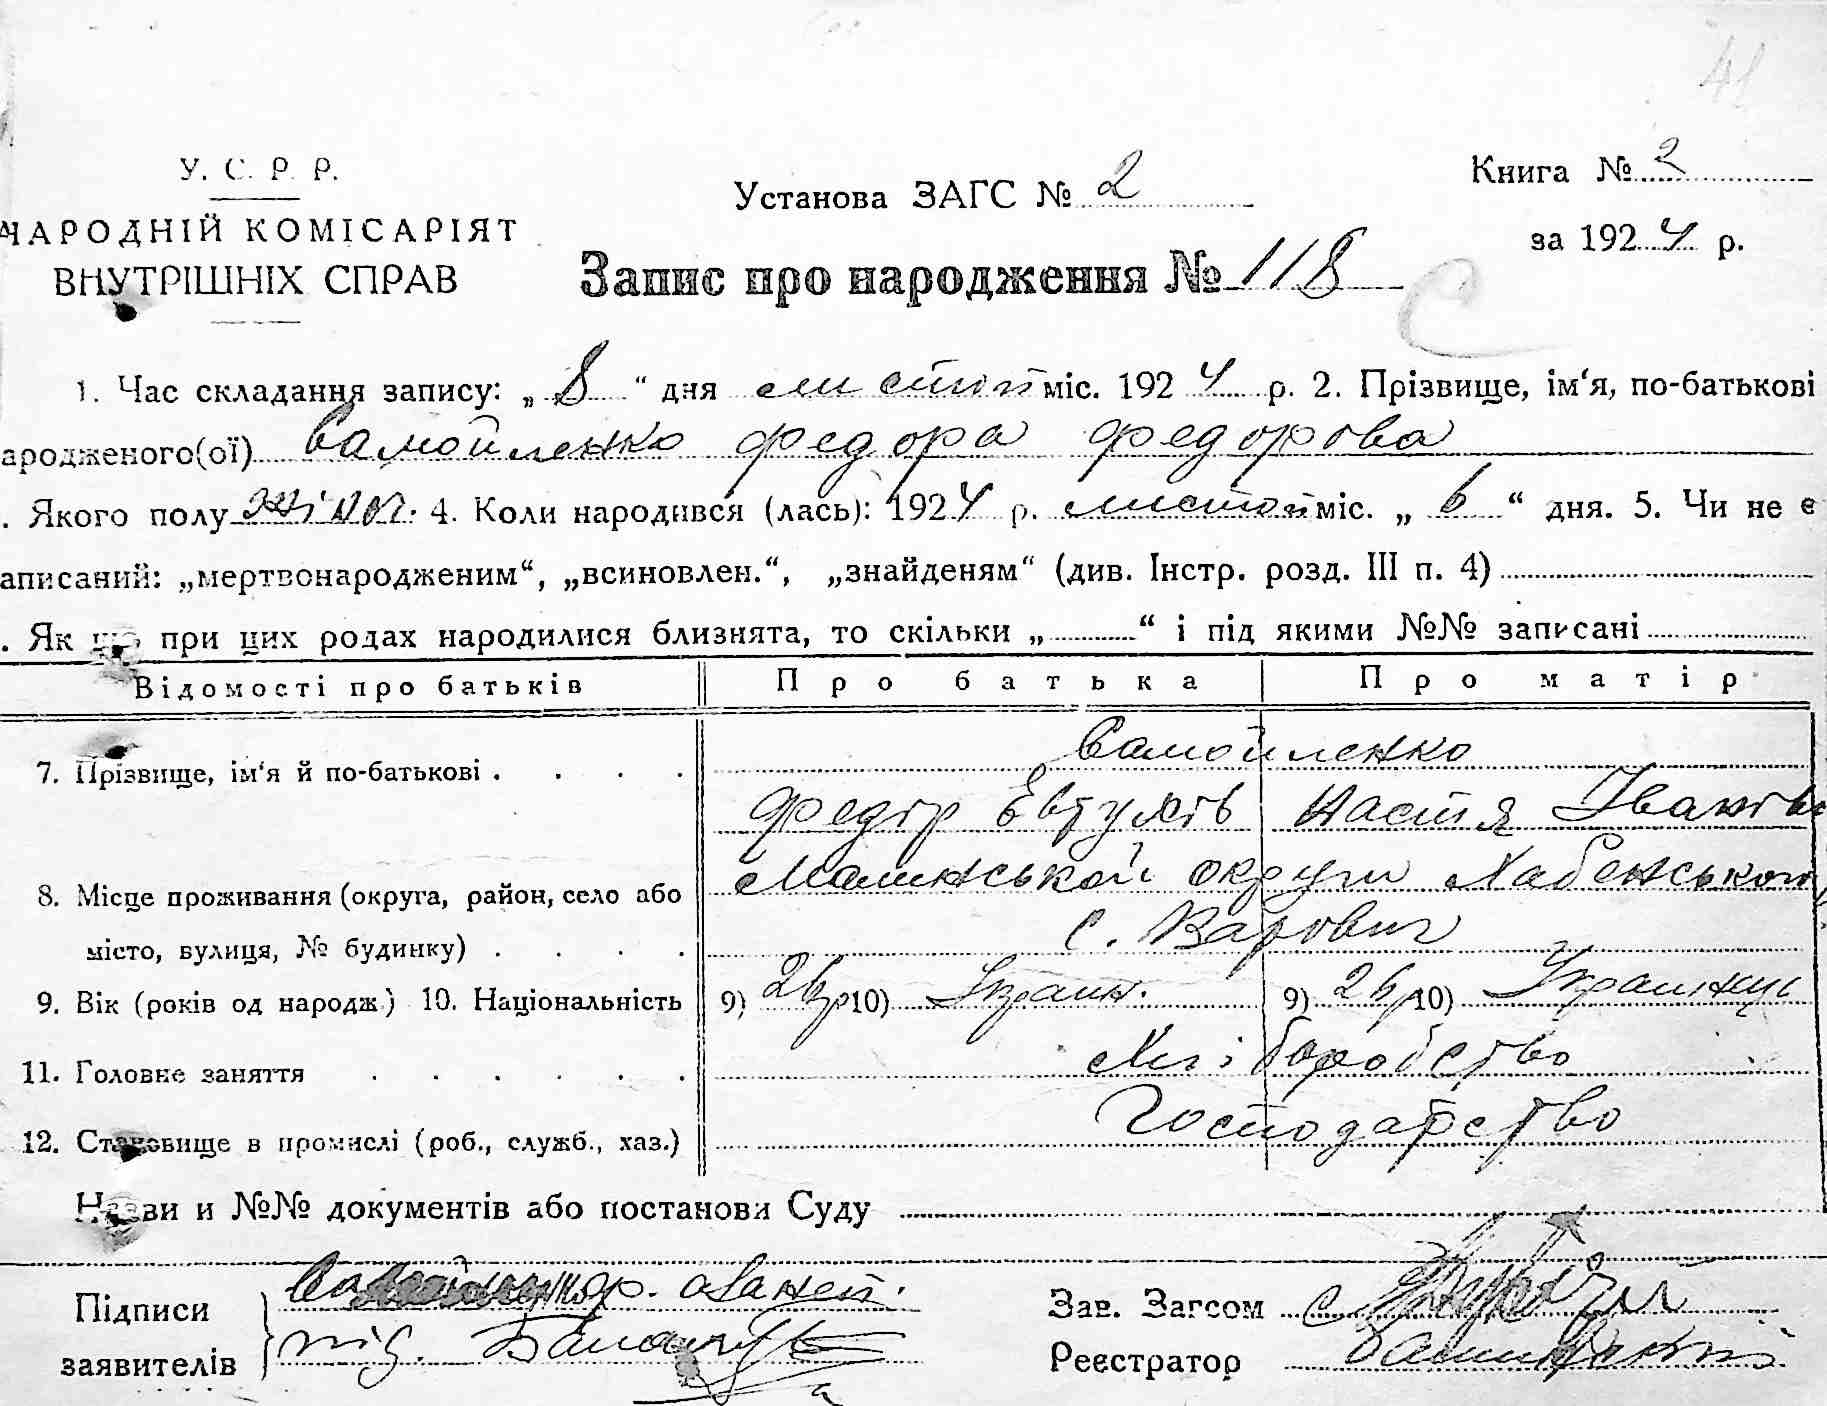 41
У. С. Р. Р.
НАРОДНІЙ КОМІСАРІЯТ
ВНУТРІШНІХ СПРАВ
Установа ЗАГС № 2
Книга № 2
за 1924 р.
Запис про народження № 118
С
1. Час складання запису: „ 8 “ дня листоп міс. 1924 р. 2. Прізвище, ім‘я, по-батькові
ародженого(ої) Самойленко Федора Федорова
. Якого полу жіноч. 4. Коли народився (лась): 1924 р. листоп міс. „ 6 “ дня. 5. Чи не є
аписаний: „мертвонародженим“, „всиновлен.“, „знайденям“ (див. Інстр. розд. III п. 4)
. Як що при цих родах народилися близнята, то скільки „ “ і під якими №№ записані
Відомості про батьків Про батька Про матір
7. Прізвище, ім‘я й по-батькові . . . . Самойленко
Федір Евтухів Настя Іванівн
8. Місце проживання (округа, район, село або Малинської округи Хабенського
місто, вулиця, № будинку) . . . . с. Варович
9. Вік (років од народж.) 10. Національність 9) 26 р 10) Україн. 9) 26 р 10) Українць
11. Головне заняття . . . . . . Хліборобство
12. Становище в промислі (роб., служб., хаз.) Господарство
Назви и №№ документів або постанови Суду
Підписи
заявителів
Зав. Загсом
Реєстратор